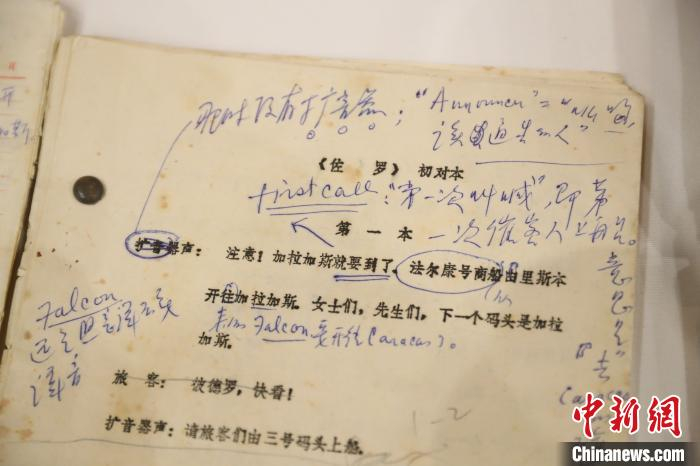 开
那时没有扩音器；"Announcer"=
该 通告的人"
《佐罗》 初对本
first call："第一次叫喊"，即第
一次催客人上船。
第一本
扩音器声： 注意！加拉加斯就要到了，法尔康号商船由里斯本
开往加拉加斯．女士们，先生们，下一个码头是加拉
加斯．
Falcon
Falcon要开往Caracas了。
意思是
"去
Caracas
旅 客： 彼德罗，快看！
1-2
扩音器声：请旅客们由三号码头上船．
中新网
Chinanews.com